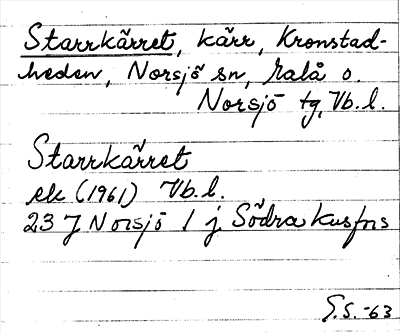 Starrkärret, kärr, Kronstad-
heden, Norsjö sn, Malå o.
Norsjö tg, Vb.l.
Starrkärret
ek (1961) Vb.l.
23 J Norsjö 1 j Södra Kusfors
S.S.-63